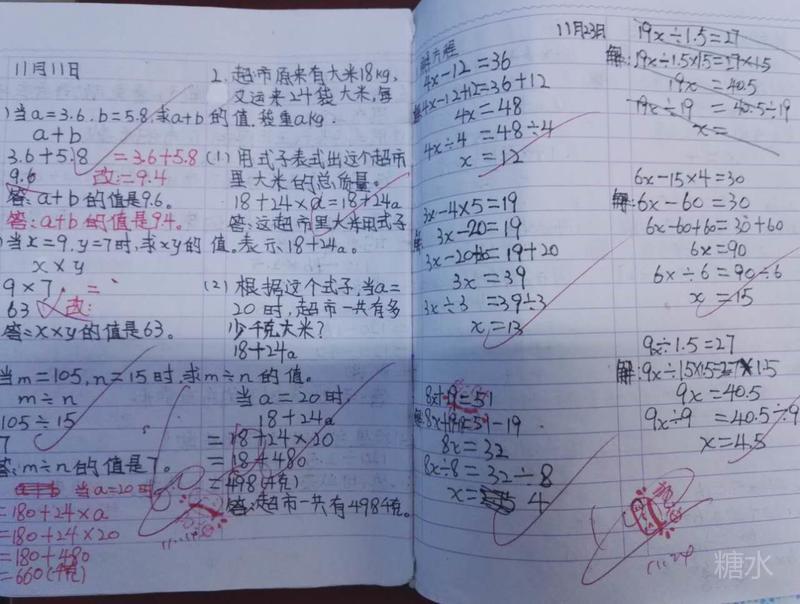 11月11日
)当a=3.6.b=5.8,求a+b的值.
a+b
3.6+5.8 =3.6+5.8
9.6 改:=9.4
答:a+b的值是9.6。
答:a+b的值是9.4.
)当x=9,y=7时,求xy的值。
x×y
9×7. =
63 改:
答:x×y的值是63。
当m=105,n=15时,求m÷n的值。
m÷n
105÷15
7
答:m÷n的值是7。
当a=20时
=180+24×a
=180+24×20
=180+480
=660(千克)
2.超市原来有大米18kg,
又运来24袋大米,每
袋重akg.
(1)用式子表式出这个超市
里大米的总质量。
18+24×a=18+24a
答:这超市里大米用式子
表示18+24a。
(2)根据这个式子,当a=
20时,超市一共有多
少千克大米?
18+24a
当a=20时.
18+24a
=18+24×20
=18+480
=498(千克)
答:超市一共有498千克。
11月23日
解方程
4x-12=36
4x-12+12=36+12
4x=48
4x÷4=48÷4
x=12
3x-4×5=19
3x-20=19
3x-20+20=19+20
3x=39
3x÷3=39÷3
x=13
8x+19=51
8x+19-19=51-19
8x=32
8x÷8=32÷8
x=4
19x÷1.5=27
解:19x÷1.5×1.5=27×1.5
19x=40.5
19x÷19=40.5÷19
x=
6x-15×4=30
解:6x-60=30
6x-60+60=30+60
6x=90
6x÷6=90÷6
x=15
9x÷1.5=27
解:9x÷1.5×1.5=27×1.5
9x=40.5
9x÷9=40.5÷9
x=4.5
11.24
糖水